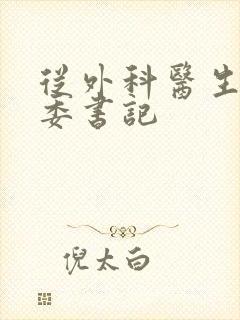 從外科醫生
委書記
倪太白